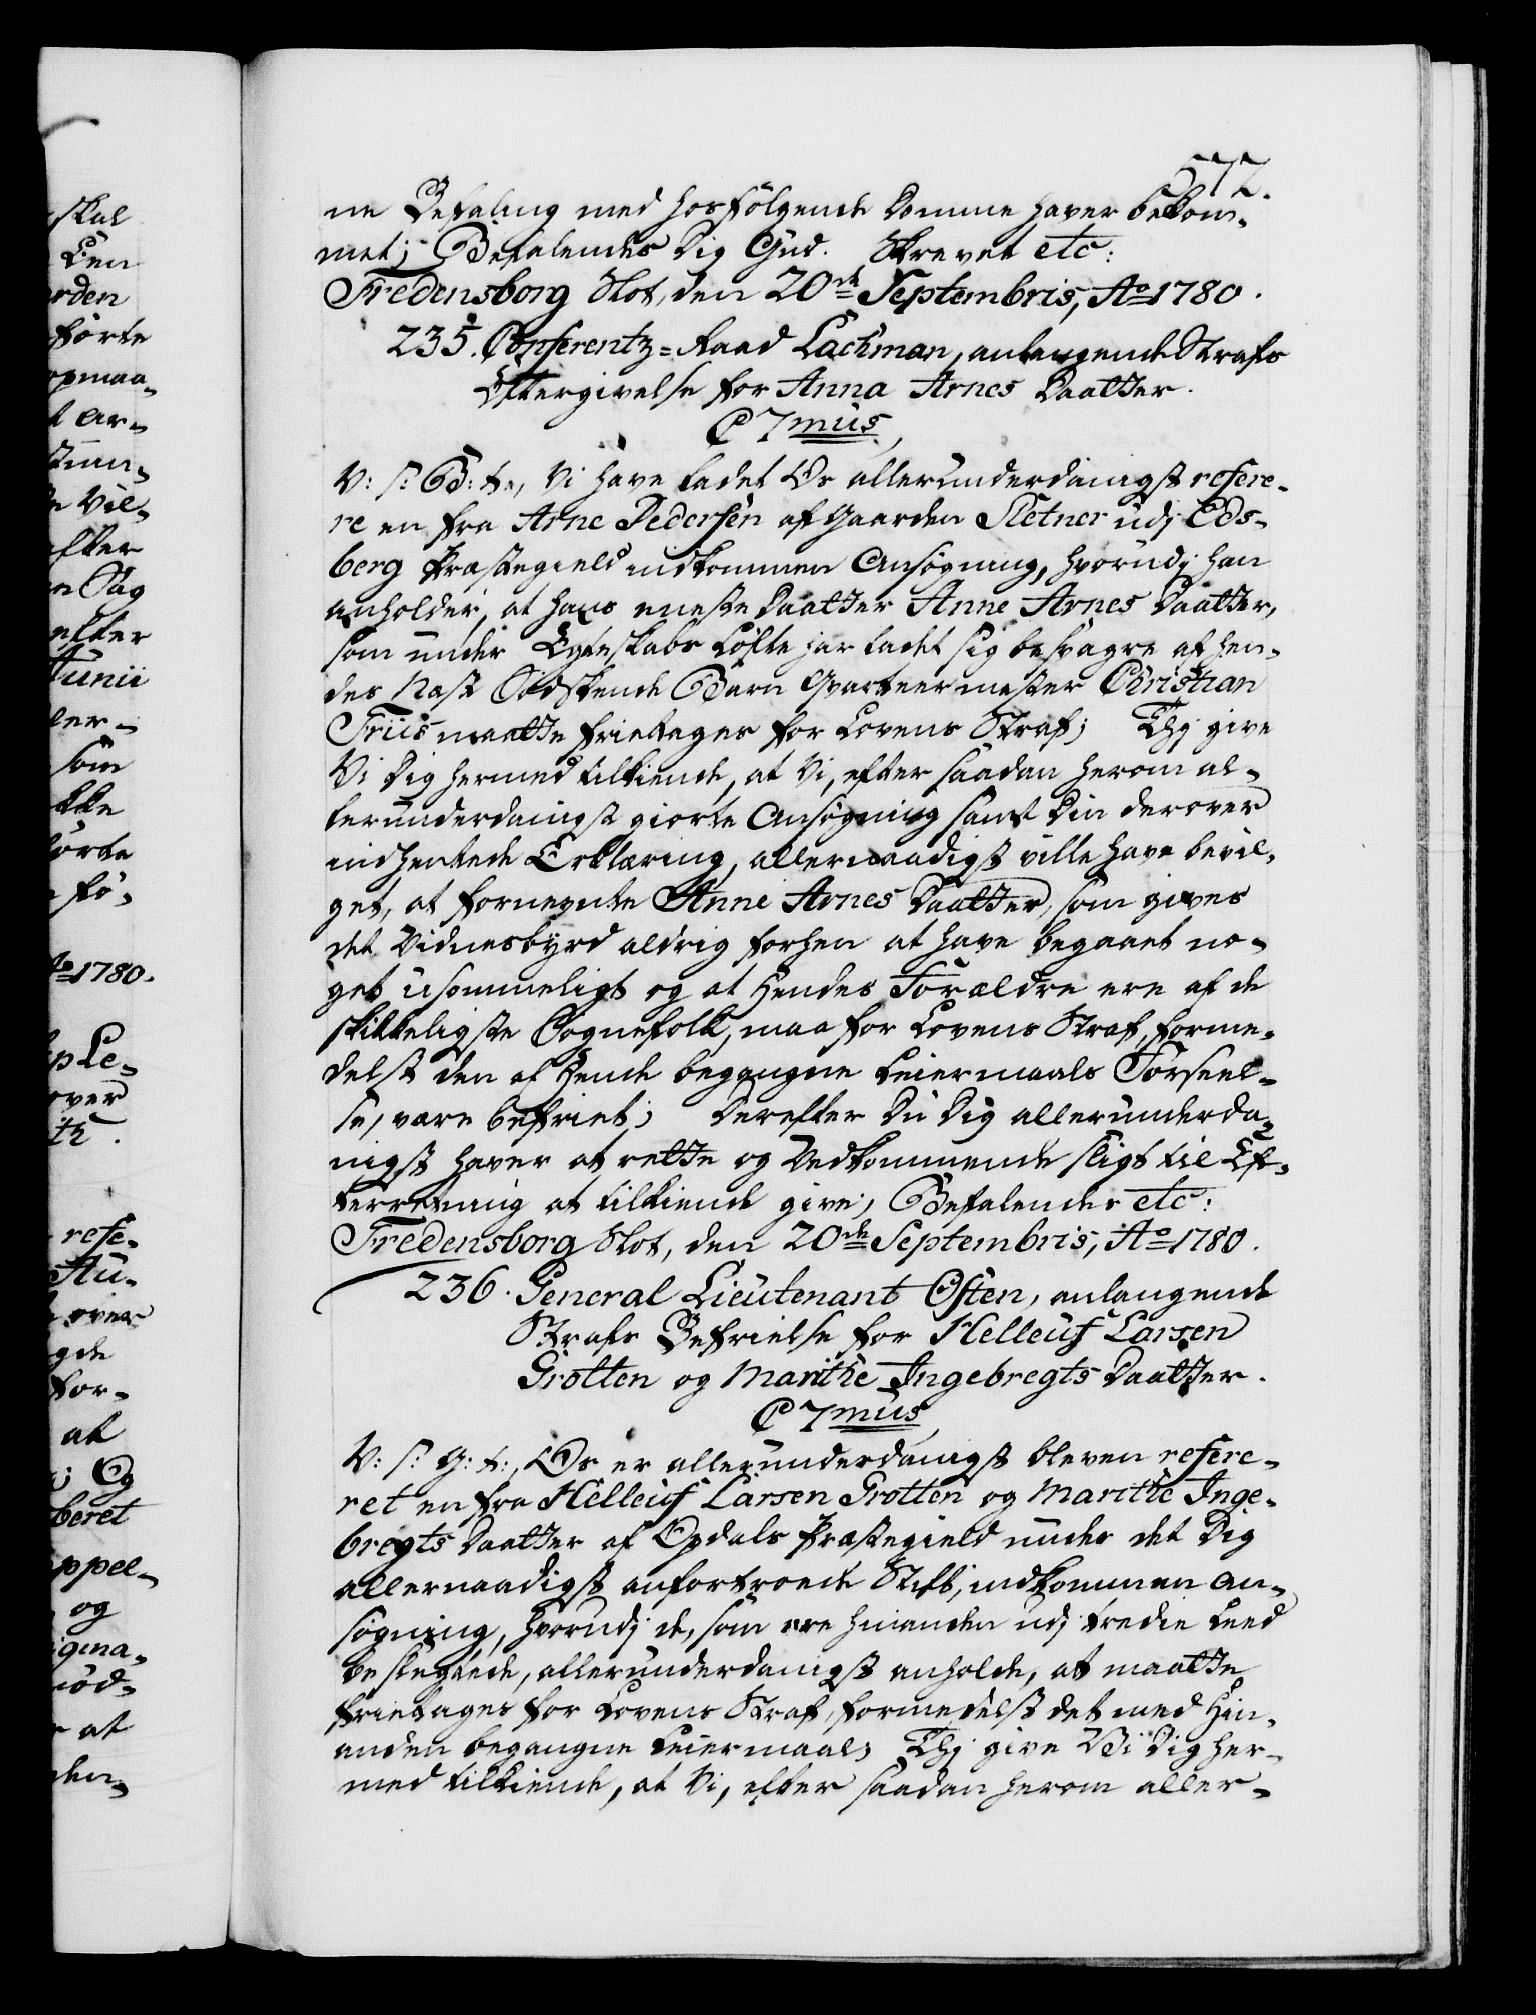 572.
ne Befaling med hosfölgende Domme haver bekom-
met; Befalendes Dig Gud. Skrevet etc:
Fredensborg Slot, den 20de Septembris, Ao 1780.
235. Conferentz-Raad Lachman, anlangende Strafs
Eftergivelse for Anna Arnes Daatter.
C 7mus
V: s: G: t:, Vi have ladet Os allerunderdanigst refere-
re en fra Arne Pedersen af Gaarden Sletner udj Eds-
berg Præstegield indkommen Ansøgning, hvorudj han
anholder, at hans eneste Daatter Anne Arnes Daatter,
som under Egteskabs Løfte har ladet sig besvagre af hen-
des Næst Sødskende Barn Qvarteermester Christian
Friis maatte frietages for Lovens Straf; Thj give
Vi Dig hermed tilkiende, at Vi, efter saadan herom al-
lerunderdanigst giorte Ansøgning samt Din derover
indhentede Erklæring, allernaadigst ville have bevil-
get, at fornevnte Anne Arnes Daatter, som gives
det Vidnesbyrd aldrig forhen at have begaaet no-
get usømmeligt og at Hendes Forældre ere af de
skikkeligste Sognefolk, maa for Lovens Straf, forme-
delst den af Hende begangne Leiermaals Forseel-
se, være befriet; Derefter Du Dig allerunderda-
nigst haver at rette og Vedkommende sligt til Ef-
terretning at tilkiende give; Befalendes etc:
Fredensborg Slot, den 20de Septembris, Ao 1780.
236. General Lieutenant Osten, anlangende
Strafs Befrielse for Helleuf Larsen
Grotten og Marithe Ingebregts Daatter.
C 7mus
V: s: G: t:, Os er allerunderdanigst bleven refere-
ret en fra Helleuf Larsen Grotten og Marithe Inge-
bregts Daatter af Opdals Præstegield under det Dig
allernaadigst anfortroede Stift, indkommen An-
søgning, hvorudj de, som ere hinanden udj tredie Leed
beslegtede, allerunderdanigst anholde, at maatte
frietages for Lovens Straf, formedelst det med Hin-
anden begangne Leiermaal; Thj give Vi Dig her-
med tilkiende, at Vi, efter saadan herom aller-